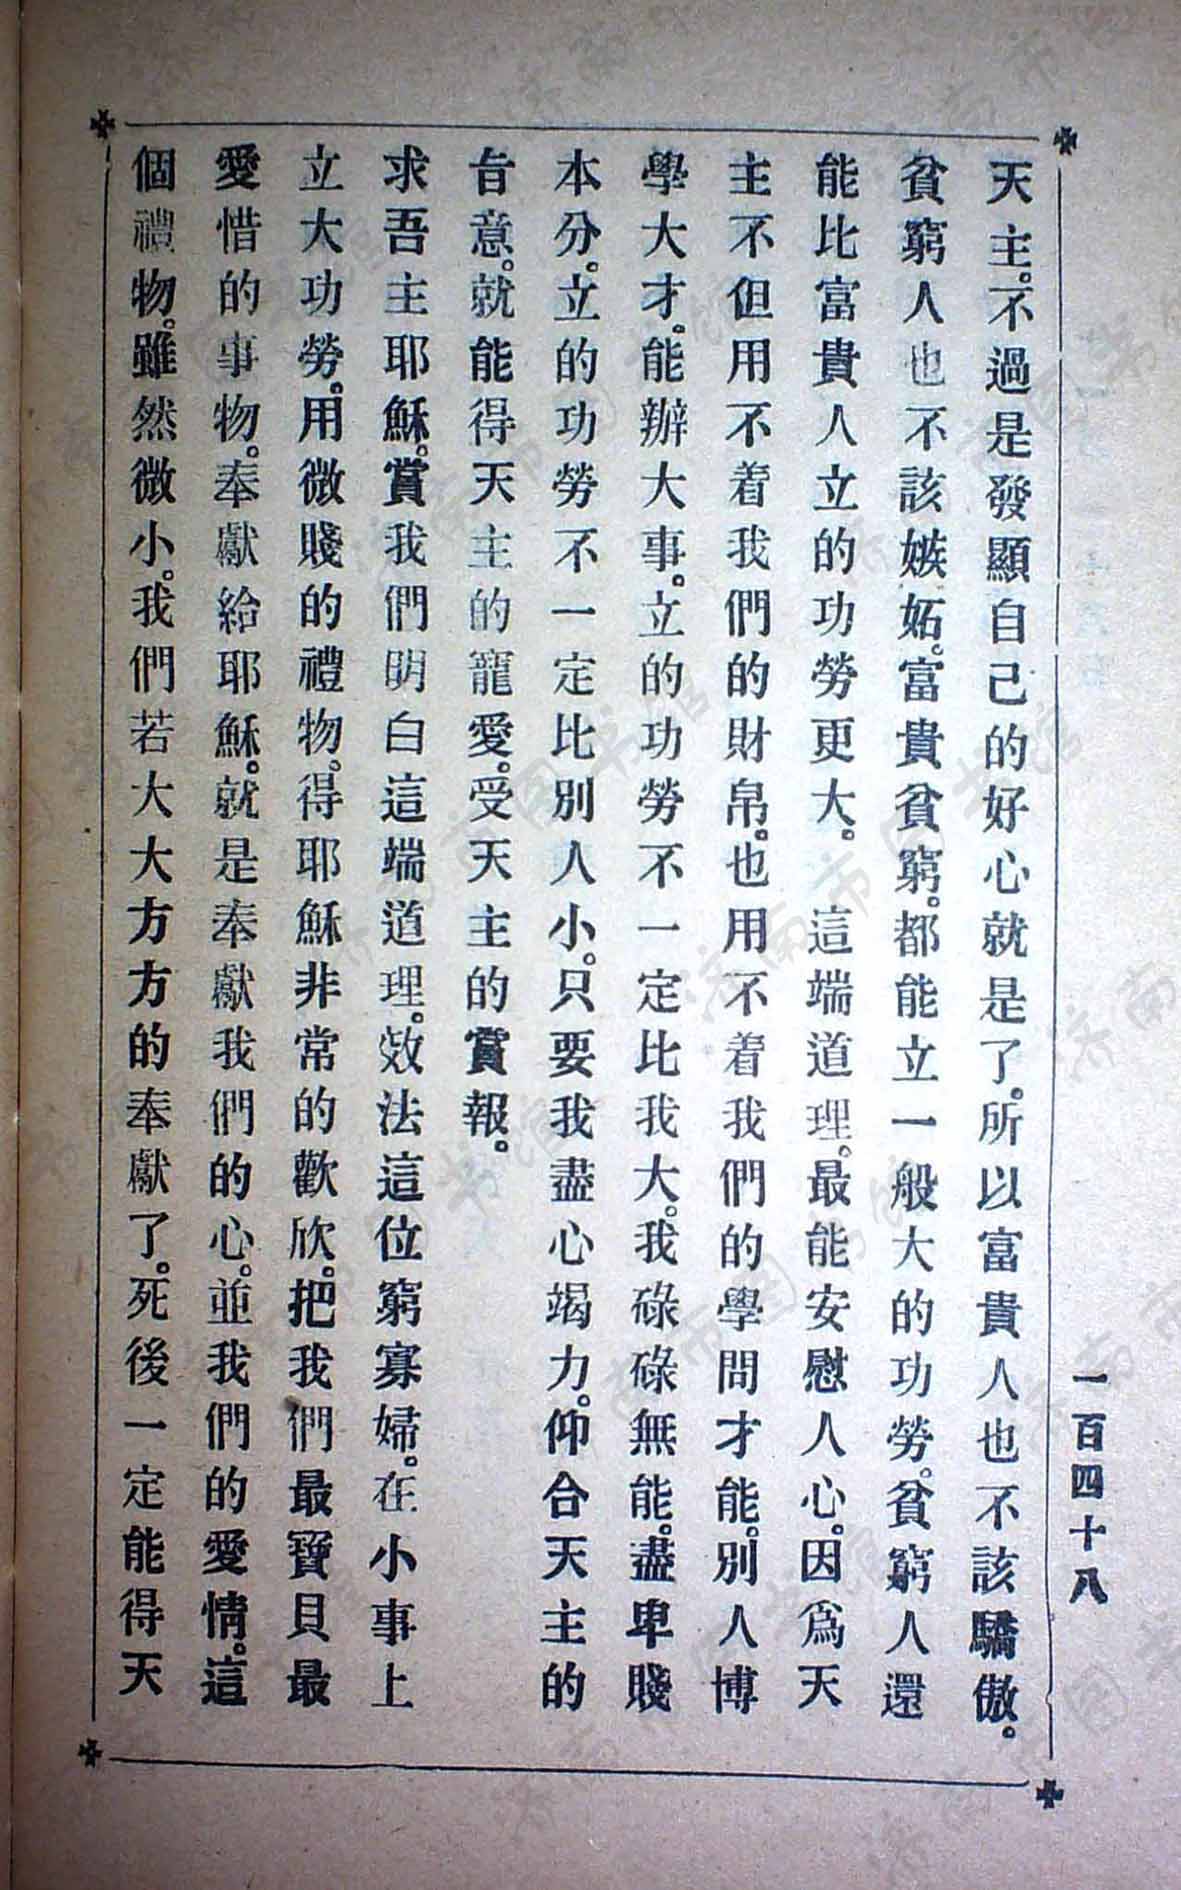 一百四十八
天主。不過是發顯自己的好心就是了。所以富貴人也不該驕傲。
貧窮人也不該嫉妬。富貴貧窮。都能立一般大的功勞。貧窮人還
能比富貴人立的功勞更大。　這端道理。最能安慰人心。因爲天
主不但用不着我們的財帛。也用不着我們的學問才能。別人博
學大才。能辦大事。立的功勞不一定比我大。我碌碌無能。盡卑賤
本分。立的功勞不一定比別人小。只要我盡心竭力。仰合天主的
旨意。就能得天主的寵愛。受天主的賞報。
求吾主耶穌。賞我們明白這端道理。效法這位窮寡婦。在小事上
立大功勞。用微賤的禮物。得耶穌非常的歡欣。把我們最寶貝最
愛惜的事物。奉獻給耶穌。就是奉獻我們的心。並我們的愛情。這
個禮物。雖然微小。我們若大大方方的奉獻了。死後一定能得天
济南市图书馆